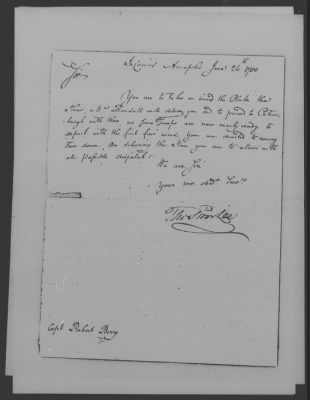 In Council Annapolis June 26th 1780
Sir
You are to take on board the Rudder the
Stores, Mr Randall will deliver you and to proceed to Peters-
burgh with them as some Troops are now nearly ready to
depart with the first fair wind. You are desired to convoy
them down. On delivering the Stores you are to return with
all possible dispatch.
We are Sir
Your mo. obdt. Servts.
Tho S Lee
Capt. Robert Berry